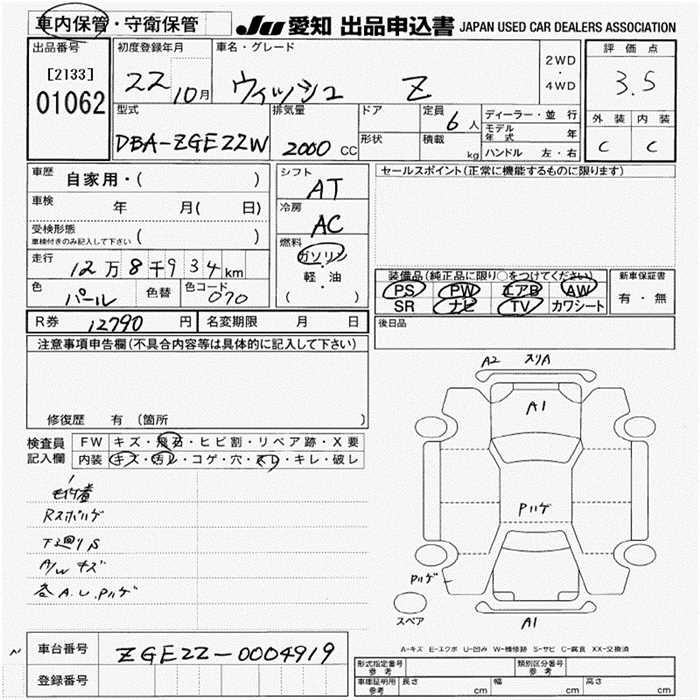 車内保管・守衛保管
JU 愛知 出品申込書 JAPAN USED CAR DEALERS ASSOCIATION
出品番号 初度登録年月 車名・グレード 2WD・4WD 評価点
[2133] 01062 22 10月 ウィッシュ Z 3.5
型式 排気量 ドア 定員 6人 ディーラー・並行 外装 内装
DBA-ZGE22W 2000 CC 形状 積載 kg モデル年式 年 C C
ハンドル 左・右
車歴 自家用・( ) シフト AT セールスポイント(正常に機能するものに限ります)
車検 年 月( 日) 冷房 AC
受検形態 車検付きのみ記入して下さい ( )
燃料 ガソリン・軽・油 ( )
走行 12万8千934km
装備品(純正品に限り○をつけてください) 新車保証書
色 パール 色替 色コード 070
PS PW エアB AW 有・無
SR ナビ TV カワシート
R券 12790 円 名変期限 月 日 後日品
注意事項申告欄(不具合内容等は具体的に記入して下さい)
修復歴 有 (箇所 )
検査員記入欄 FW キズ・飛石・ヒビ割・リペア跡・X要
内装 キズ・汚レ・コゲ・穴・スレ・キレ・破レ
Rスポハゲ
下廻りS
A/W キズ
各A.U.Pハゲ
A2 スリA
A1
Pハゲ
Pハゲ
A1
スペア
A-キズ E-エクボ U-凹み W-補修跡 S-サビ C-腐食 XX-交換済
~ 車台番号 ZGE22-0004919
登録番号
形式指定番号 参考 類別区分番号 参考
車庫証明用 参考 長さ cm 幅 cm 高さ cm